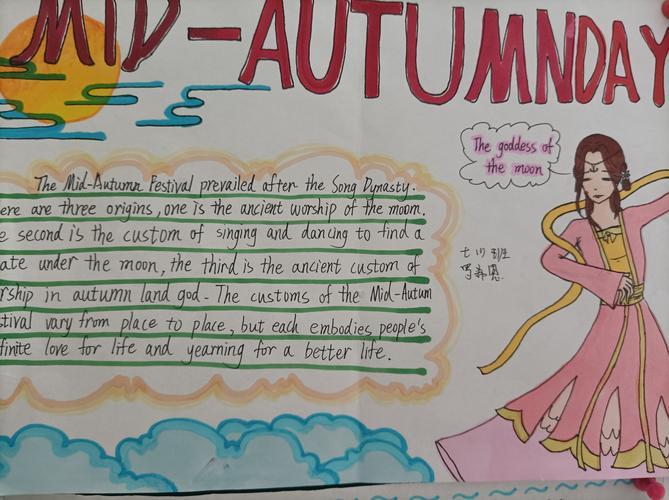 MID-AUTUMNDAY
The goddess of
the moon
The Mid-Autumn Festival prevailed after the Song Dynasty.
ere are three origins, one is the ancient worship of the moon.
e second is the custom of singing and dancing to find a
ate under the moon, the third is the ancient custom of
rship in autumn land god. The customs of the Mid-Autum
tival vary from place to place, but each embodies people's
finite love for life and yearning for a better life.